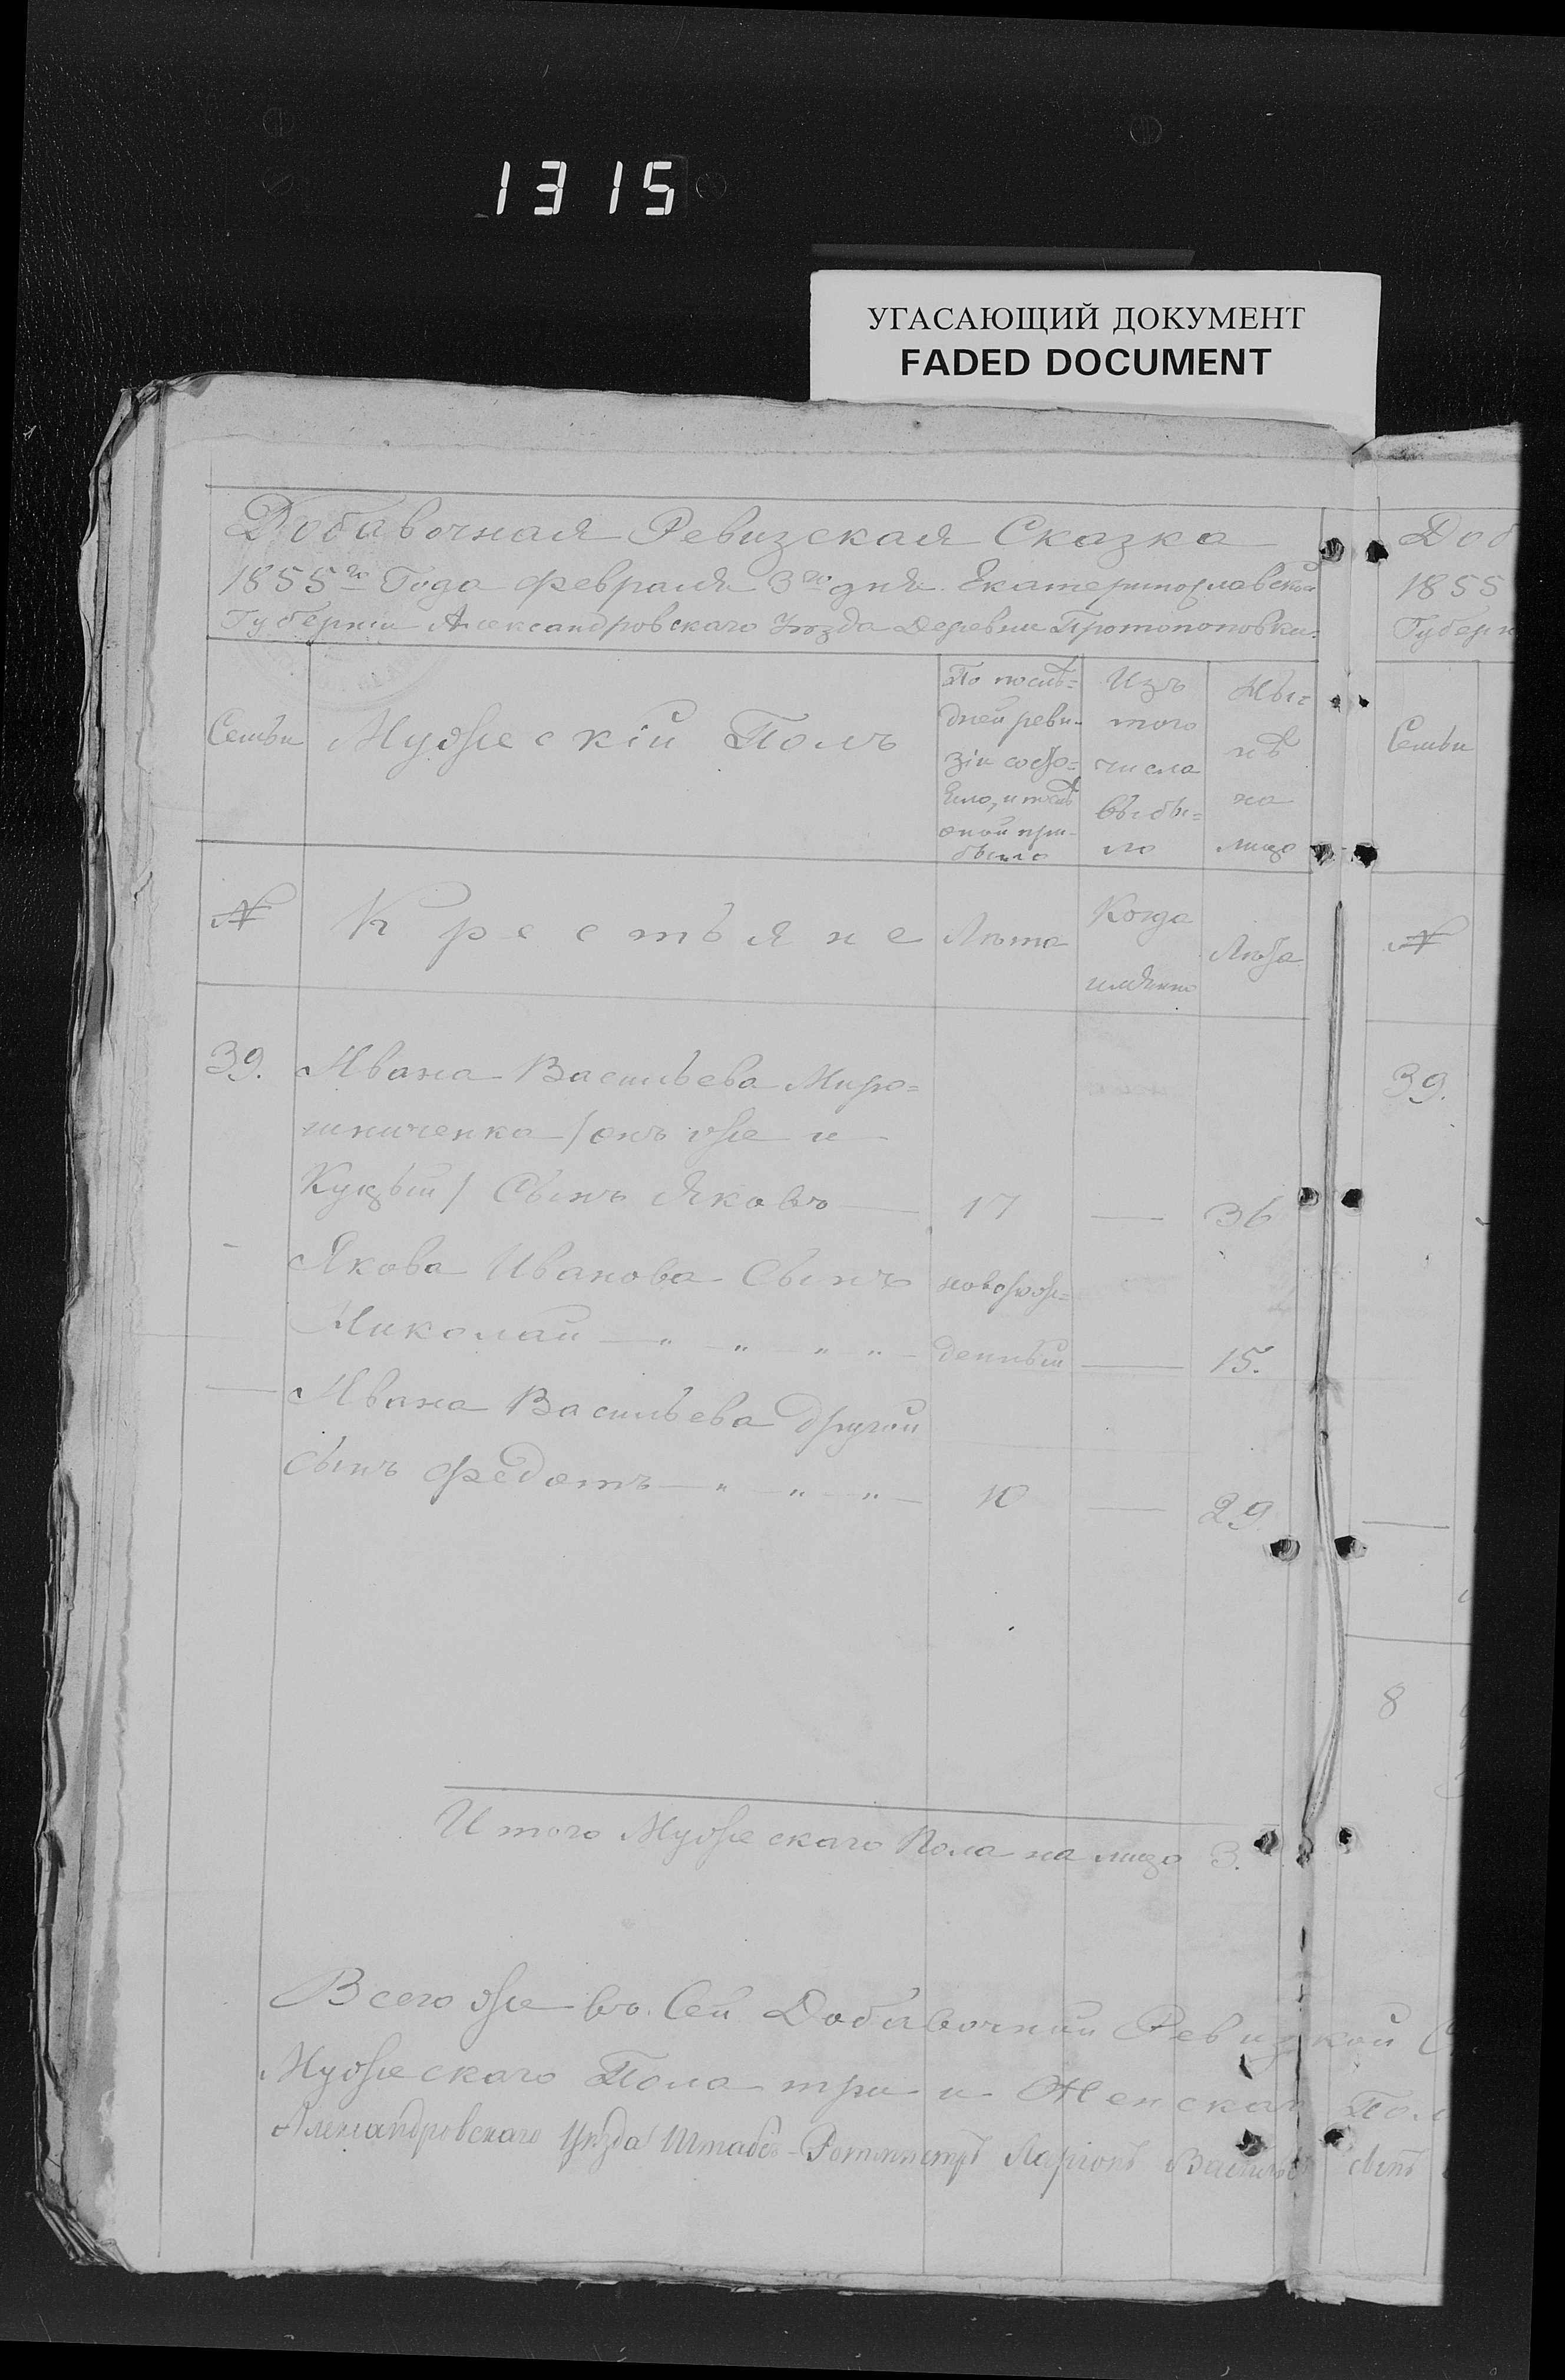 1315
УГАСАЮЩИЙ ДОКУМЕНТ
FADED DOCUMENT
Добавочная Ревизская Сказка
1855го Года февраля 3го дня. Екатеринославской
Губерніи Александровскаго Уѣзда Деревни Протопоповки.
Семьи
Мужескій Полъ
По послѣ=
дней реви-
зіи состо=
яло, и послѣ
оной при-
было
Изъ
того
числа
выбы=
ло
Ны=
нѣ
на
лицо
№
Крестьяне
Лѣта
Когда
именно
Лѣта
39. Ивана Васильева Миро=
шниченка /онъ же и
Куцый/ Сынъ Яковъ — 17 — 36
Якова Иванова Сынъ новорож=
Николай — " " " " — денный — 15.
— Ивана Васильева другой
сынъ Федотъ — " " " — 10 — 29.
Итого Мужескаго Пола на лицо 3.
Всего же въ Сей Добавочній Ревизкой
Мужескаго Пола три и Женскаг Пол
Александровскаго Уѣзда Штабсъ-Ротмистръ Ларіонъ Васильев сынъ
Доб
1855
Губерн
Семьи
№
39.
8